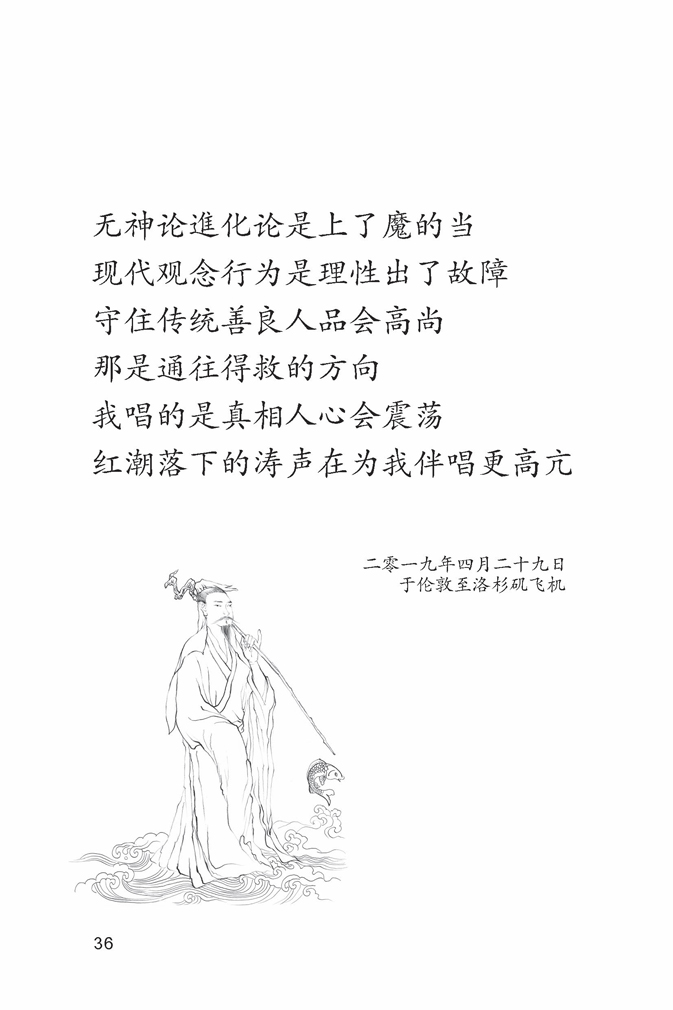 无神论進化论是上了魔的当
现代观念行为是理性出了故障
守住传统善良人品会高尚
那是通往得救的方向
我唱的是真相人心会震荡
红潮落下的涛声在为我伴唱更高亢
二零一九年四月二十九日
于伦敦至洛杉矶飞机
36